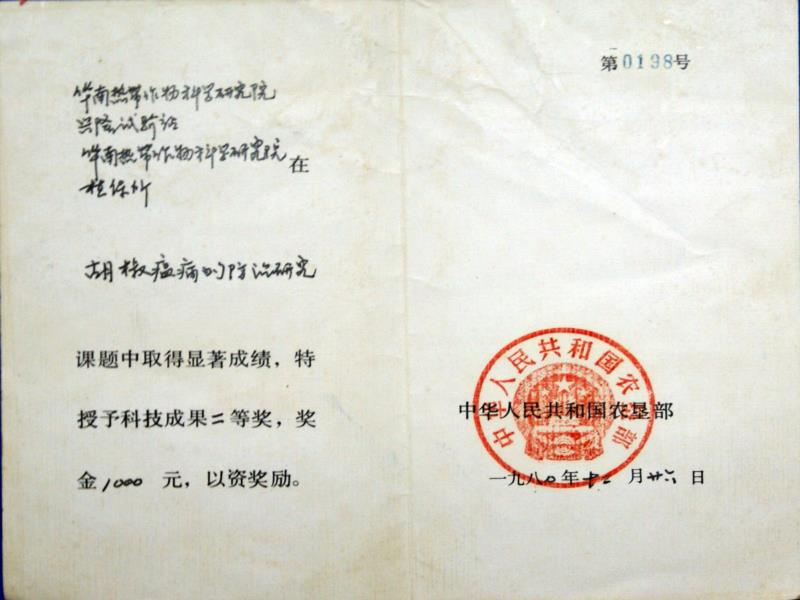 第0198号
华南热带作物科学研究院
兴隆试验站
华南热带作物科学研究院
植保所
在
胡椒瘟病的防治研究
课题中取得显著成绩，特
授予科技成果二等奖，奖
金1000元，以资奖励。
中华人民共和国农垦部
中华人民共和国农垦部
一九八〇年十二月廿六日